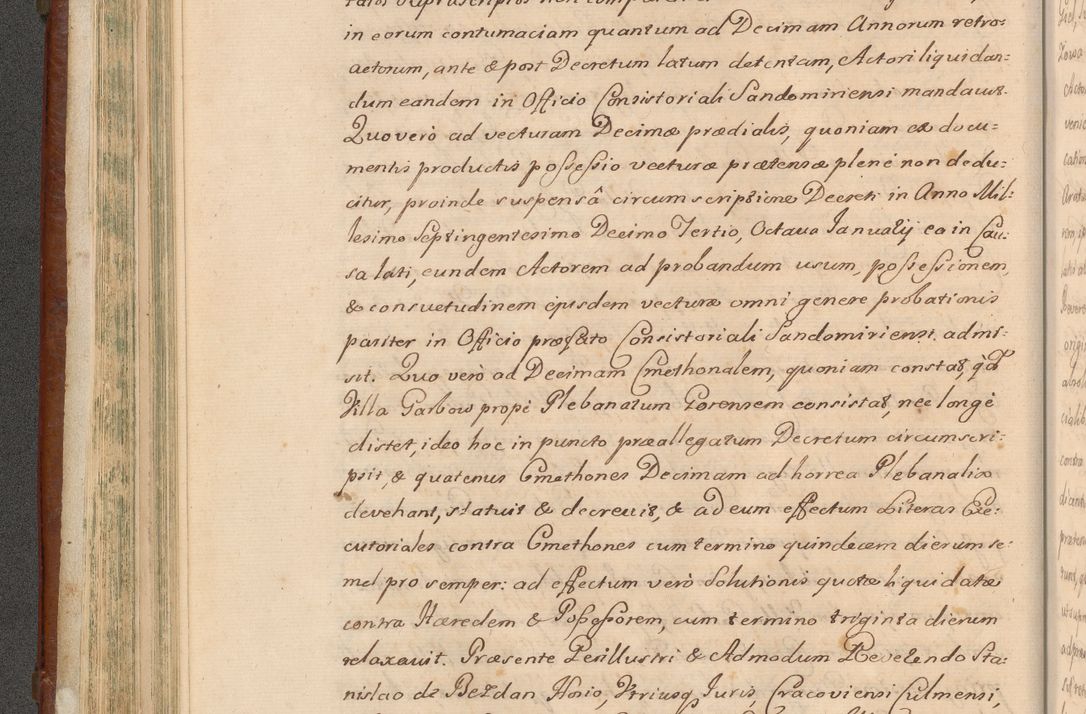 in eorum contumaciam quantum ad Decimam Annorum retro=
actorum, ante & post Decretum latum detentam, Actori liquidan=
dum eandem in Officio Consistoriali Sandomiriensi mandavit.
Quo verò ad vecturam Decimæ prædialis, quoniam ex docu=
mentis productis possessio vecturæ prætensæ plenè non dedu=
citur, proinde suspensâ circumscriptione Decreti in Anno Mil=
lesimo Septingentesimo Decimo Tertio, Octava Januarij ea in Cau=
sa lati, eundem Actorem ad probandum usum, possessionem,
& consuetudinem ejusdem vecturæ omni genere probationis
pariter in Officio præfato Consistoriali Sandomiriensi admi=
sit. Quo verò ad Decimam Cmethonalem, quoniam constat, qd
Villa Garbow propè Plebanatum Gorensem consistat, nec longè
distet, ideo hoc in puncto præallegatum Decretum circumscri=
psit, & quatenus Cmethones Decimam ad horrea Plebanalia
devehant, statuit & decrevit, & ad eum effectum Literas Exe=
cutoriales contra Cmethones cum termino quindecem dierum se=
mel pro semper: ad effectum verò Solutionis quotæ liquidatæ
contra Hæredem & Possessorem, cum termino triginta dierum
relaxavit. Præsente Perillustri & Admodum Reverendo Sta=
nislao de Bezdan Hosio, Vtriusq Juris, Cracoviensi Culmensi,